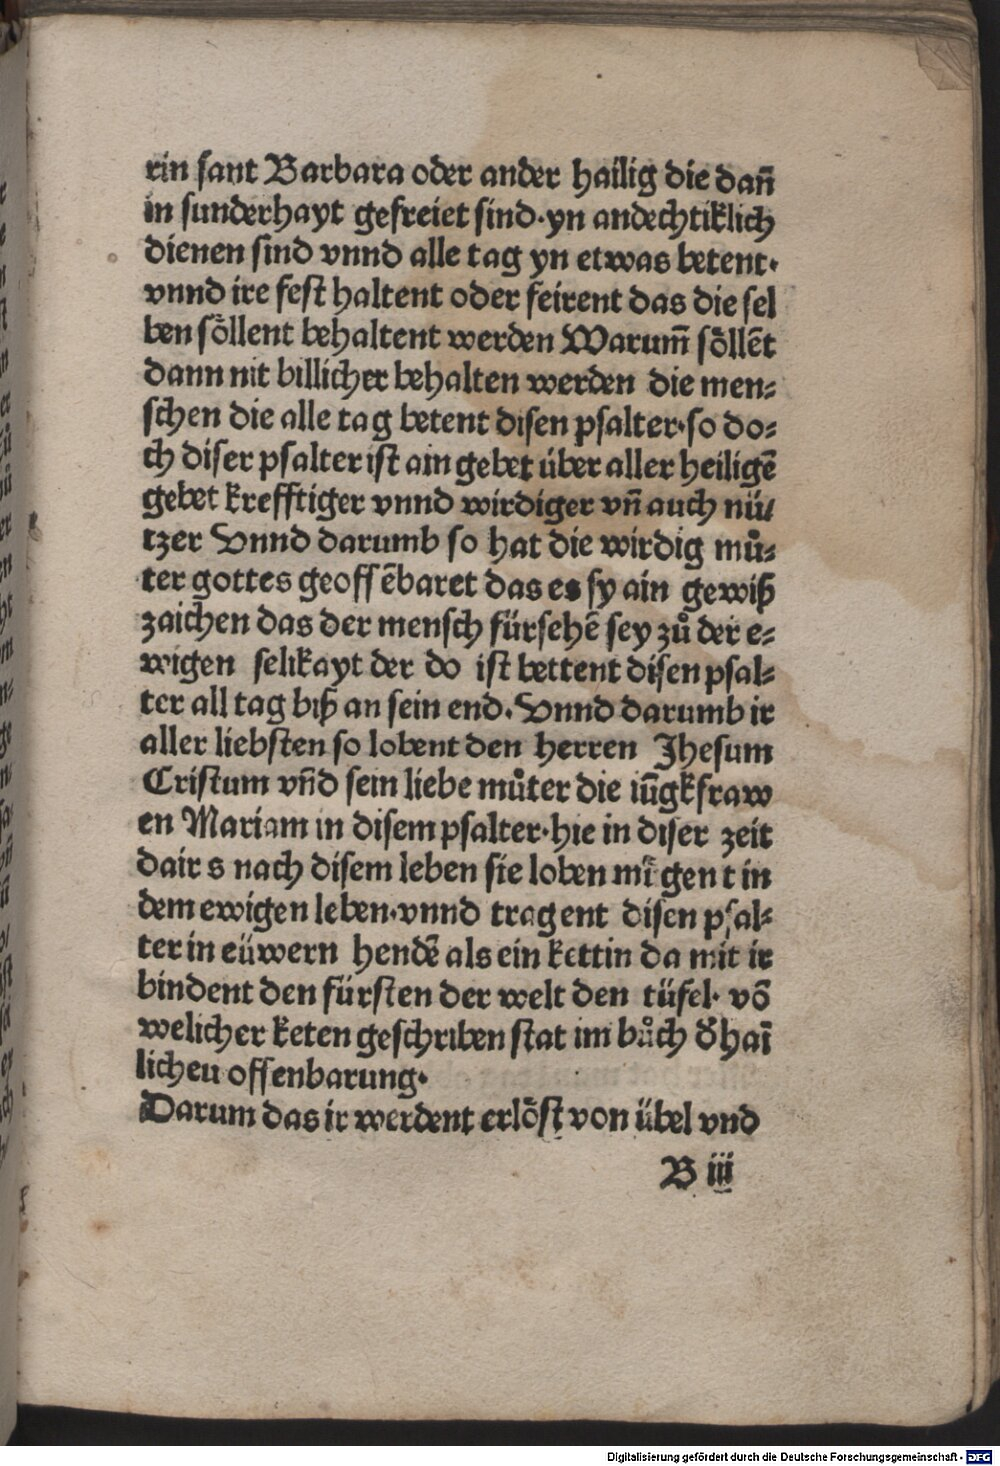 rin sant Barbara oder ander hailig die dan̄
in sunderhayt gefreiet sind·yn andechtiklich
dienen sind vnnd alle tag yn etwas betent·
vnnd ire fest haltent oder feirent das die sel
ben söllent behaltent werden Warum̄ söllēt
dann nit billicher behalten werden die men⸗
schen die alle tag betent disen psalter·so do⸗
ch diser psalter ist ain gebet über aller heiligē
gebet krefftiger vnnd wirdiger vn̄ auch nü/
tzer Vnnd darumb so hat die wirdig mů⸗
ter gottes geoffēbaret das es sy ain gewiß
zaichen das der mensch fürsehē sey zů der e⸗
wigen selikayt der do ist bettent disen psal⸗
ter all tag biß an sein end·Vnnd darumb ir
aller liebsten so lobent den herren Jhesum
Cristum vn̄d sein liebe můter die iūgkfraw
en Mariam in disem psalter·hie in diser zeit
da ir s nach disem leben sie loben mi gent in
dem ewigen leben·vnnd tragent disen psal⸗
ter in eüwern hendē als ein kettin da mit ir
bindent den fürsten der welt den tüfel· vō
welicher keten geschriben stat im bůch d̄ hai
licheu offenbarung·
Darum das ir werdent erlöst von übel vnd
B iii
Digitalisierung gefördert durch die Deutsche Forschungsgemeinschaft - DFG